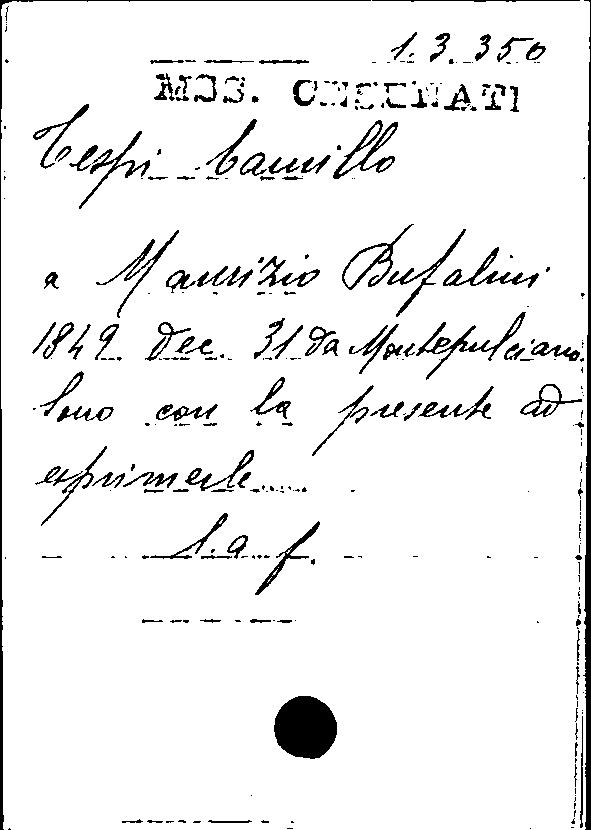 1.3.350
MSS. CESENATI
Tespi Camillo
a Maurizio Bufalini
1849 dec. 31 da Montepulciano.
Sono con la presente ad
esprimerle....
l. a. f.